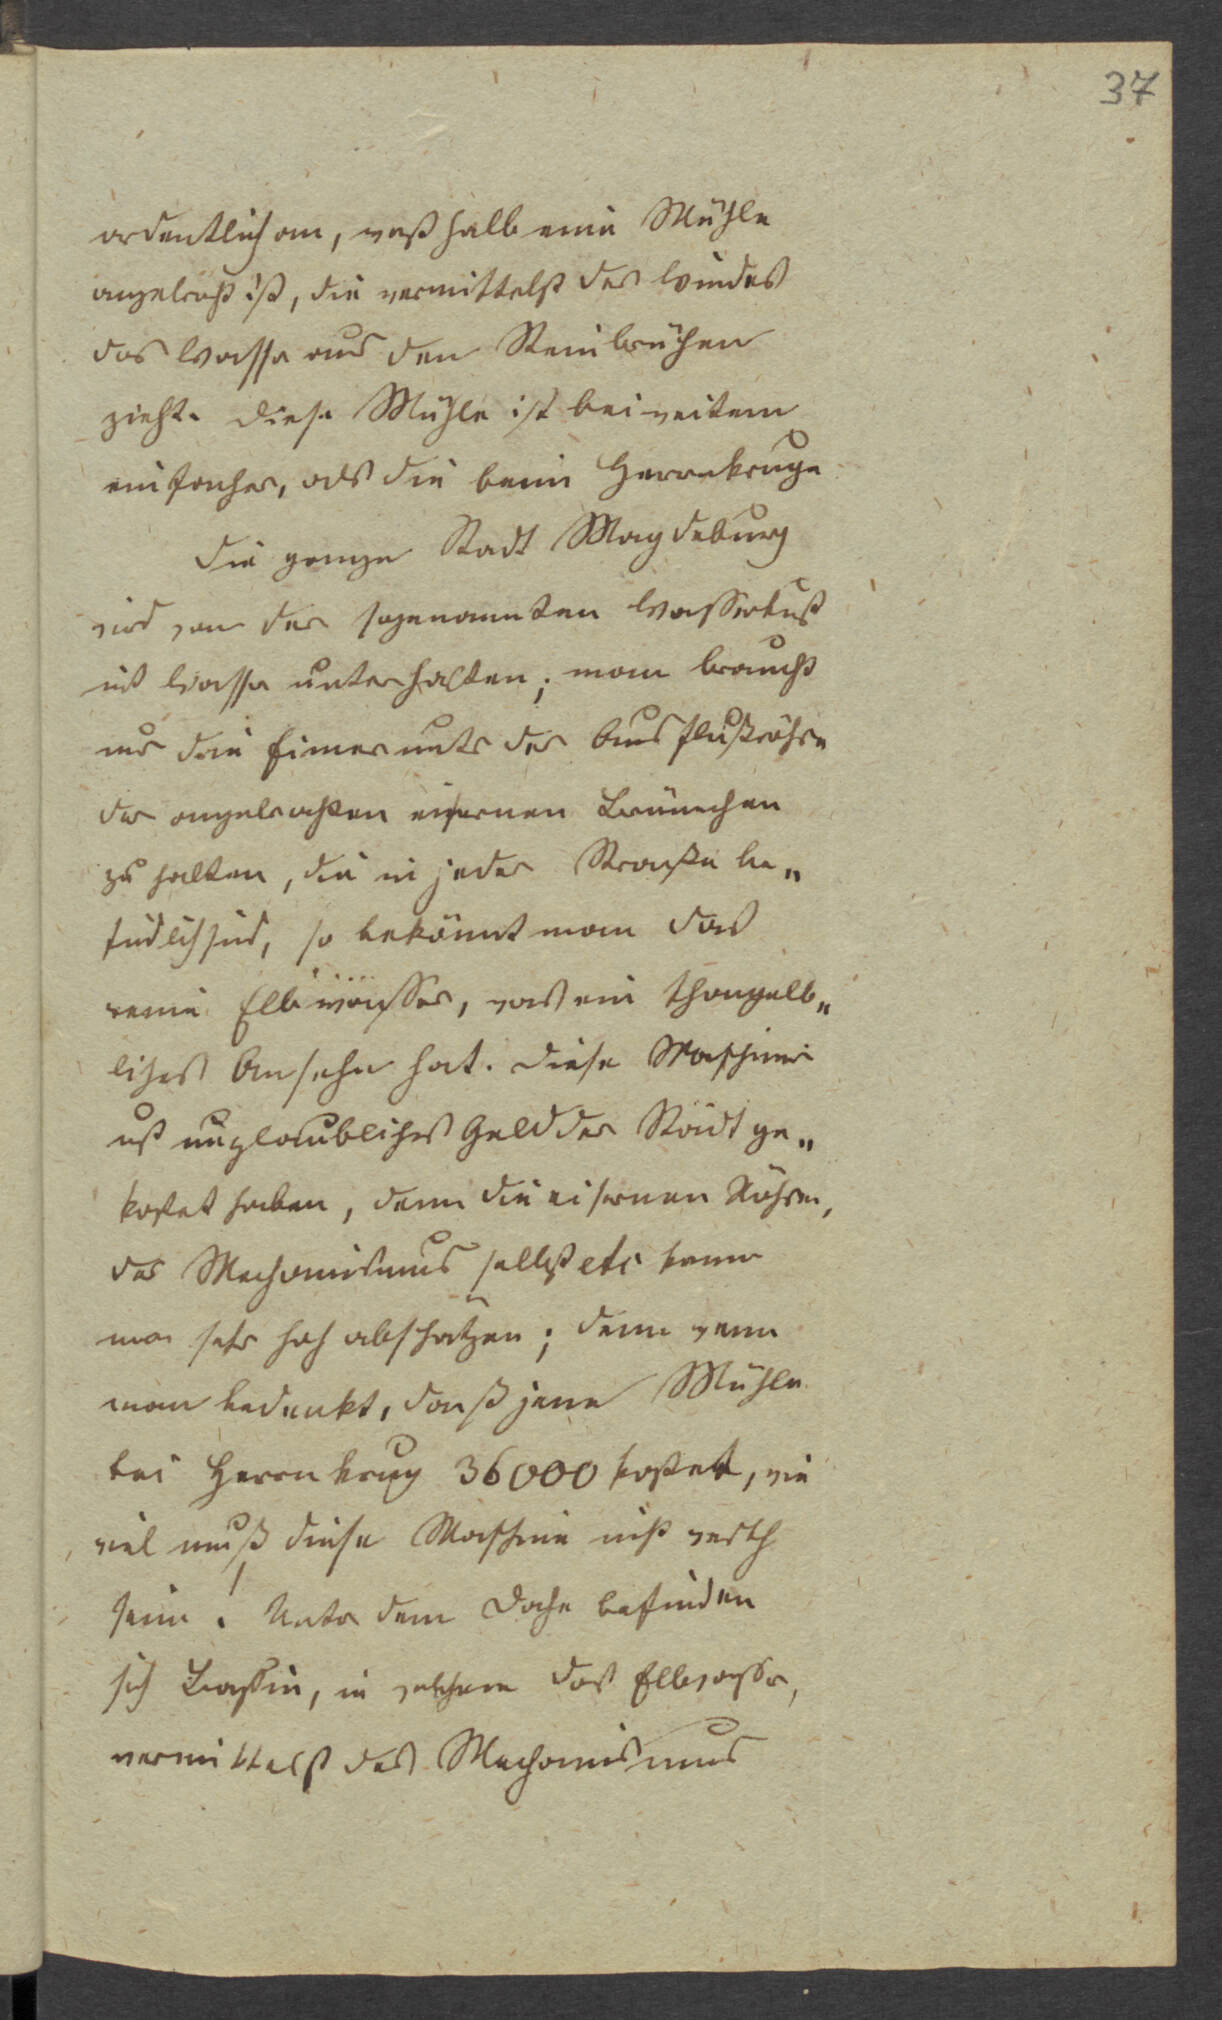 37
ordentlich an, weßhalb eine Mühle
angebracht ist, die vermittelst des Windes
das Wasser aus den Steinbrüchen
zieht. Diese Mühle ist bei weitem
einfacher, als die beim Herrnkruge
Die ganze Stadt Magdeburg
wird von der sogenannten Wasserkunst
mit Wasser unterhalten; man braucht
nur den Eimer unter der Ausflußröhre
der angebrachten eisernen Brünnchen
zu halten, die in jeder Straße be„
findlich sind, so bekömmt man das
reine Elbwasser, was ein thongelb„
liches Ansehn hat. Diese Maschine
muß unglaubliches Geld der Stadt ge„
kostet haben, denn die eisernen Röhren,
der Mechanismus selbst etc kann
man sehr hoch abschätzen; denn wenn
man bedenkt, daß jene Mühle
bei Herrnkrug 36000 kostet, wie
viel muß diese Maschine nicht werth
sein! Unter dem Dache befinden
sich Bassin, in welchem das Elbwasser,
vermittelst des Mechanismus